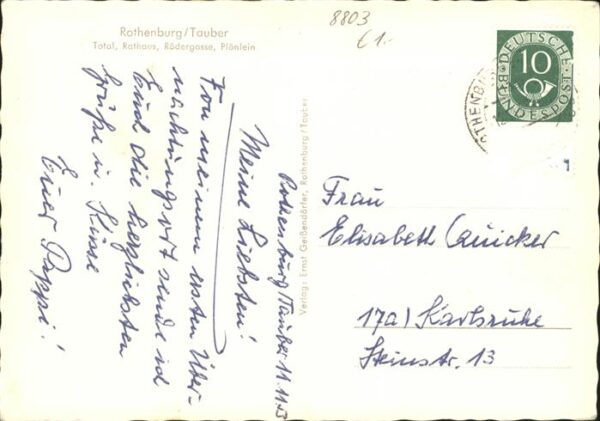 Rothenburg/Tauber
Total, Rathaus, Rödergasse, Plönlein
8803
€ 1.-
DEUTSCHE
BUNDESPOST
10
Rothenburg/Tauber 11.11.53
Meine Liebsten!
Von meinem ersten Über-
nachtungsort sende ich
Euch die herzlichsten
Grüße u. Küsse
Euer Pappi!
Verlag: Ernst Geißendörfer, Rothenburg/Tauber
Frau
Elisabeth Quicker
17a) Karlsruhe
Steinstr. 13